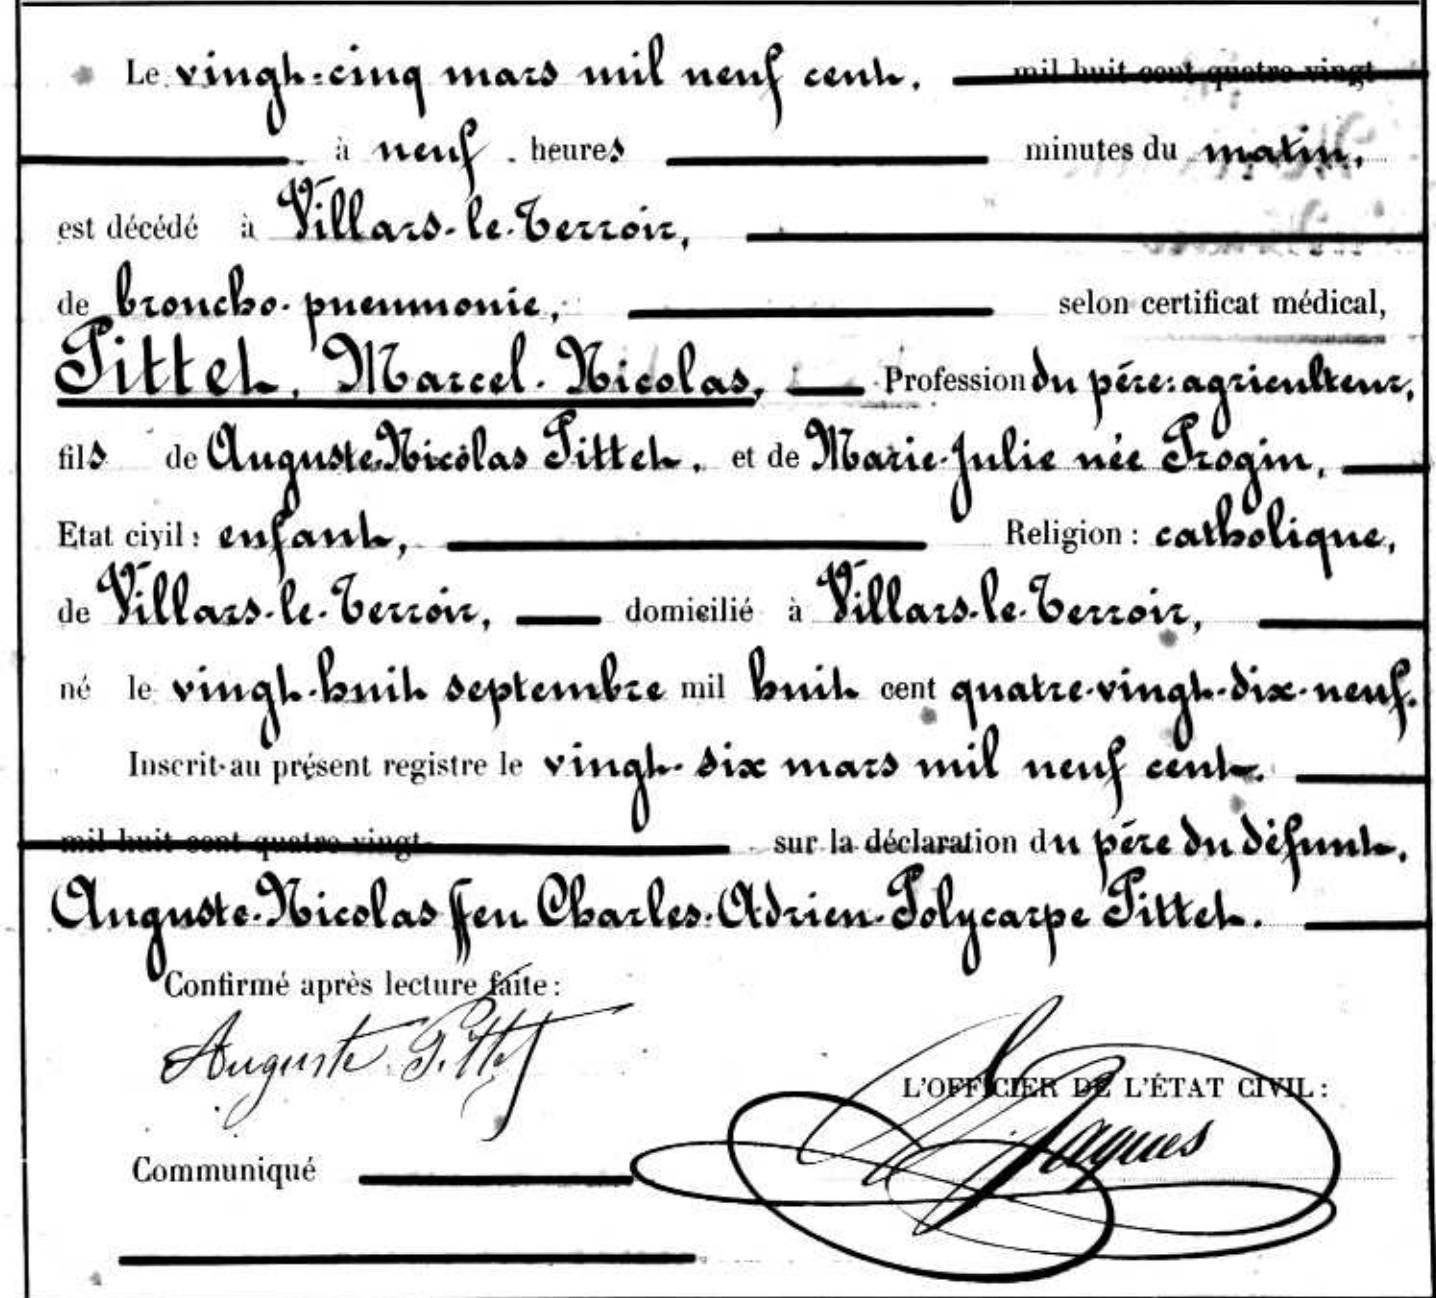 Le vingt-cinq mars mil neuf cent. mil huit cent quatre-vingt
à neuf heures minutes du matin,
est décédé à Villars-le-Terroir,
de broncho-pneumonie, selon certificat médical,
Pittet, Marcel-Nicolas, Profession du père: agriculteur,
fils de Auguste-Nicolas Pittet, et de Marie-Julie née Progin,
Etat civil: enfant, Religion: catholique,
de Villars-le-Terroir, domicilié à Villars-le-Terroir,
né le vingt-huit septembre mil huit cent quatre-vingt-dix-neuf.
Inscrit au présent registre le vingt-six mars mil neuf cent.
mil huit cent quatre-vingt sur la déclaration du père du défunt,
Auguste-Nicolas ffeu Charles-Adrien-Polycarpe Pittet.
Confirmé après lecture faite:
Auguste Pittet
L'OFFICIER DE L'ÉTAT CIVIL:
Jaques
Communiqué